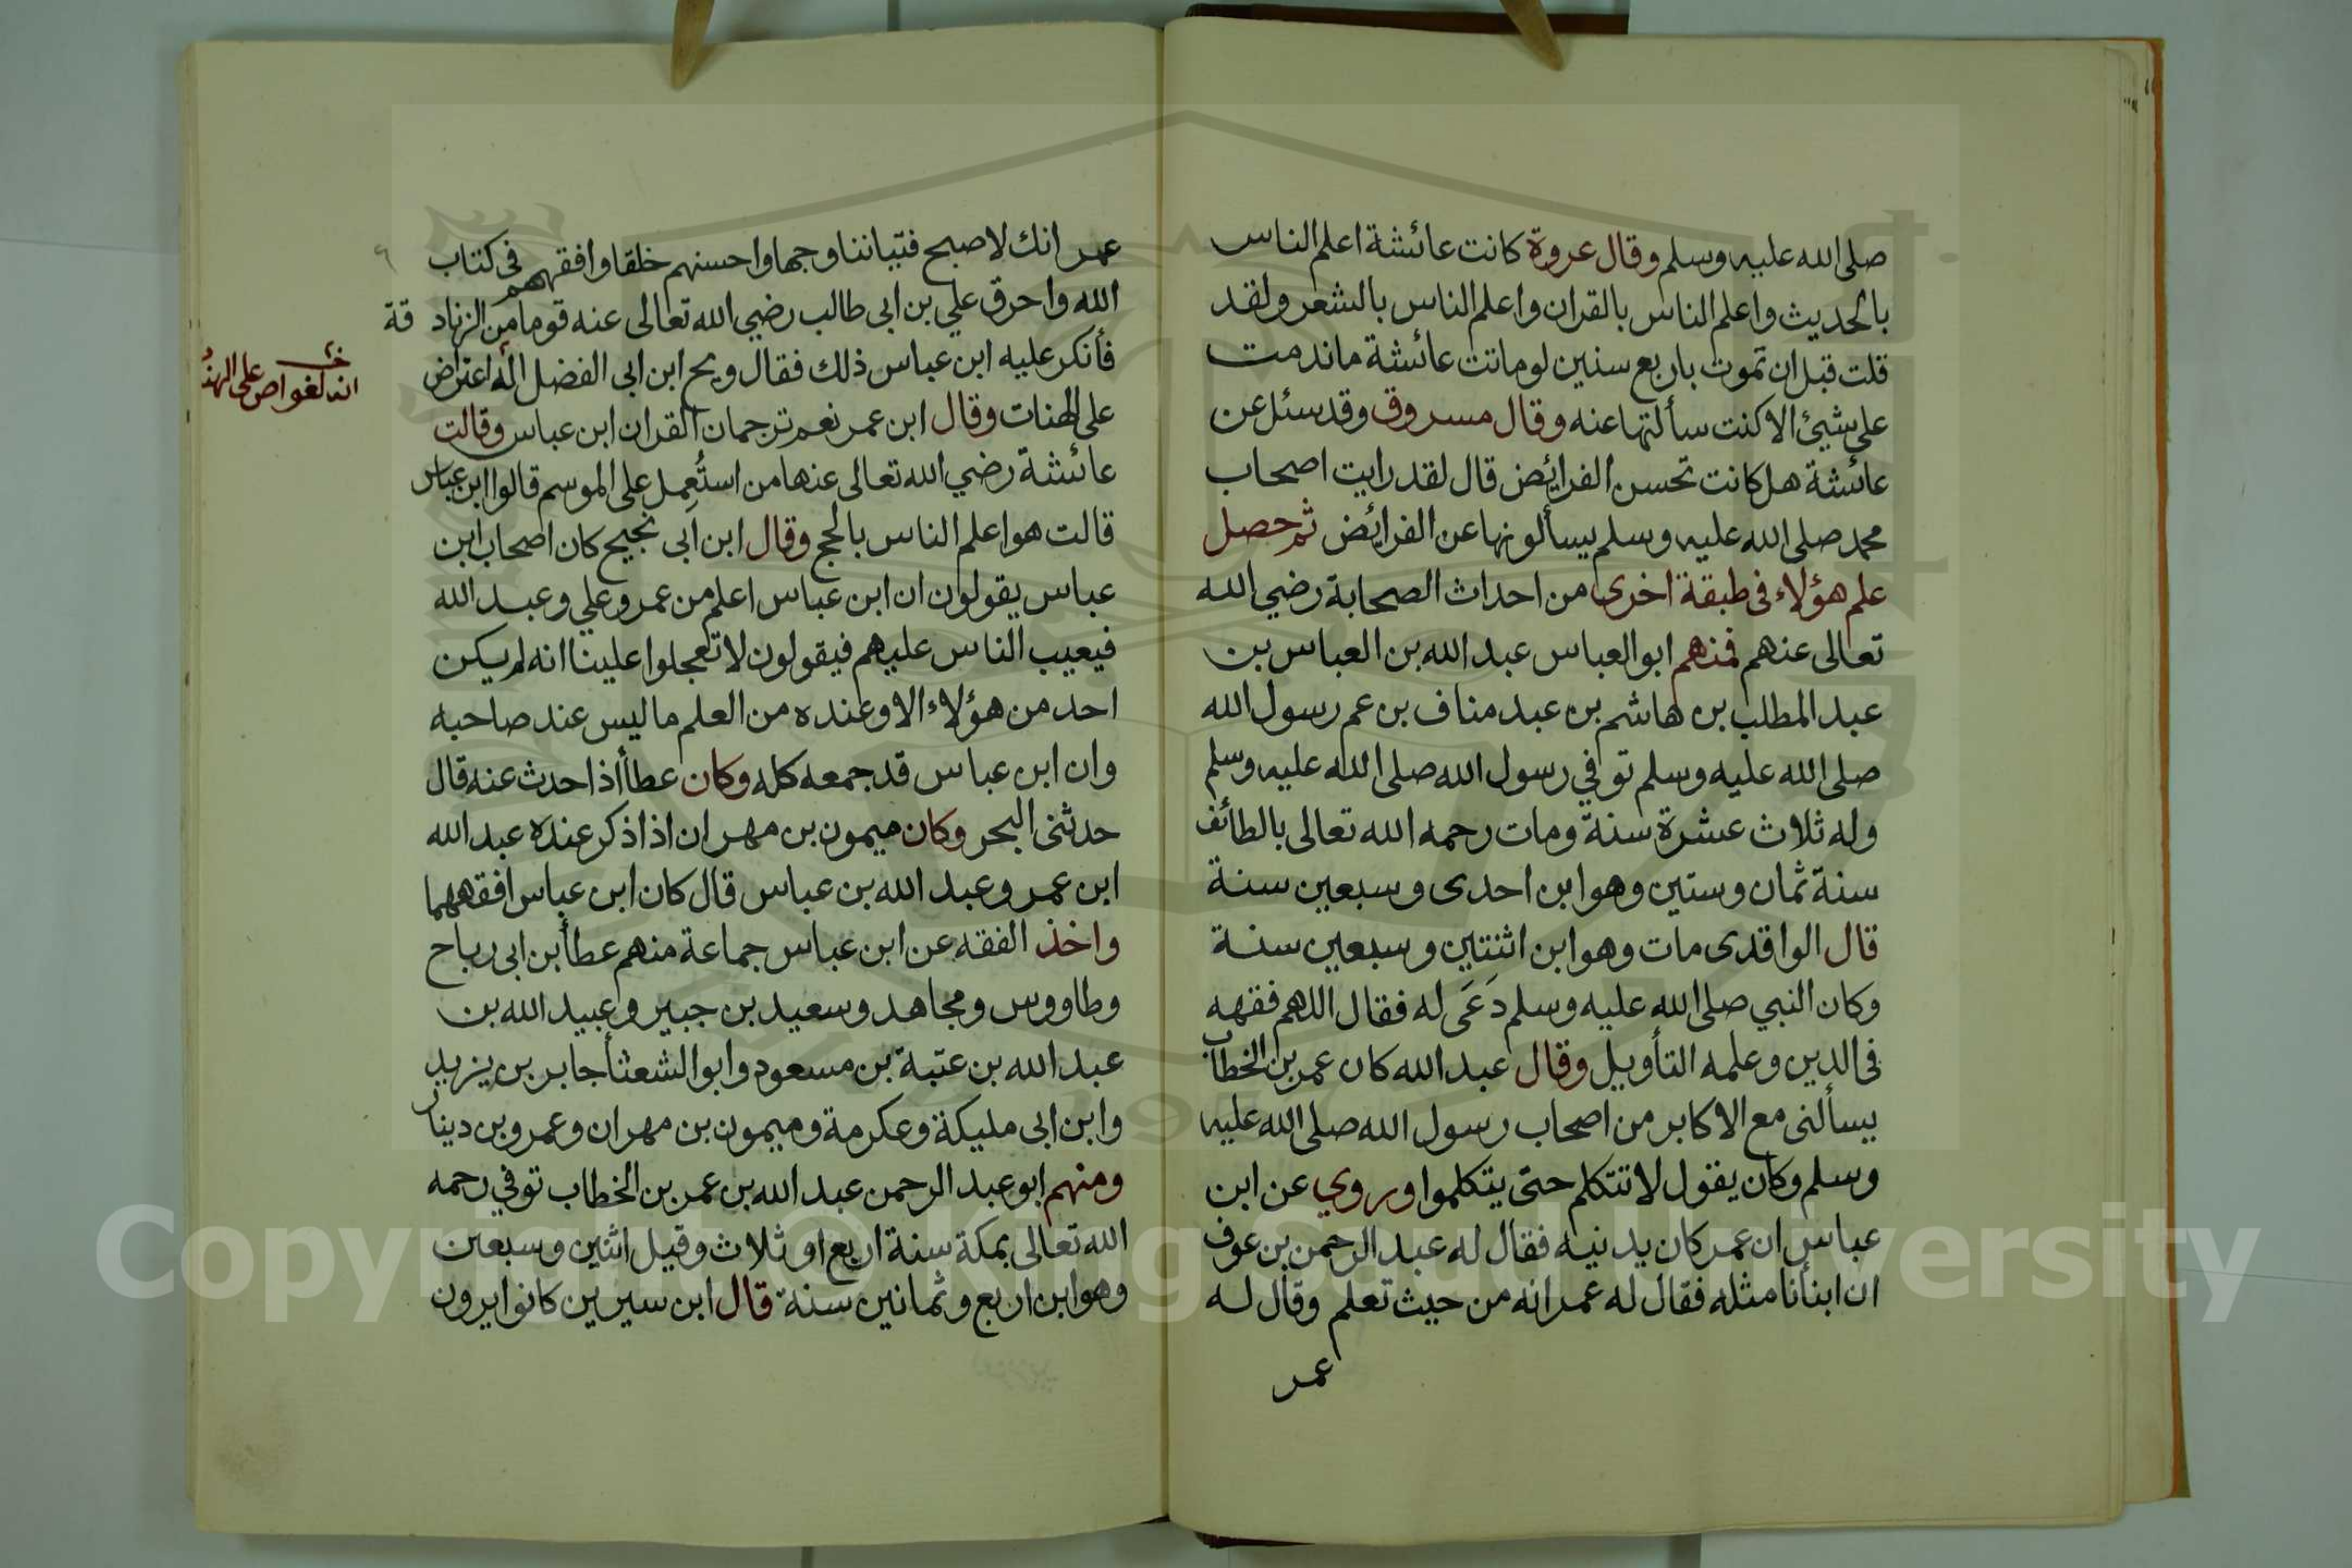 صلى الله عليه وسلم وقال عروة كانت عائشة اعلم الناس
بالحديث واعلم الناس بالقران واعلم الناس بالشعر ولقد
قلت قبل ان تموت باربع سنين لو ماتت عائشة ما ندمت
على شيئ الا كنت سألتها عنه وقال مسروق وقد سئل عن
عائشة هل كانت تحسن الفرائض قال لقد رايت اصحاب
محمد صلى الله عليه وسلم يسألونها عن الفرائض ثم حصل
علم هؤلاء فى طبقة اخرى من احداث الصحابة رضي الله
تعالى عنهم فمنهم ابو العباس عبد الله بن العباس بن
عبد المطلب بن هاشم بن عبد مناف بن عم رسول الله
صلى الله عليه وسلم توفي رسول الله صلى الله عليه وسلم
وله ثلاث عشرة سنة ومات رحمه الله تعالى بالطائف
سنة ثمان وستين وهو ابن احدى وسبعين سنة
قال الواقدى مات وهو ابن اثنتين وسبعين سنة
وكان النبي صلى الله عليه وسلم دَعَى له فقال اللهم فقهه
فى الدين وعلمه التأويل وقال عبد الله كان عمر بن الخطاب
يسألنى مع الاكابر من اصحاب رسول الله صلى الله عليه
وسلم وكان يقول لا تتكلم حتى يتكلموا وروي عن ابن
عباس ان عمر كان يدنيه فقال له عبد الرحمن بن عوف
ان ابنأنا مثله فقال له عمر انه من حيث تعلم وقال له
عمر
عمر انك لاصبح فتياننا وجها واحسنهم خلقا وافقههم فى كتاب
الله واحرق علي بن ابى طالب رضي الله تعالى عنه قوما من الزناد قة
فأنكر عليه ابن عباس ذلك فقال ويح ابن ابى الفضل انه اعتراض
على الهنات وقال ابن عمر نعم ترجمان القران ابن عباس وقالت
عائشة رضي الله تعالى عنها من استُعمِل على الموسم قالوا ابن عباس
قالت هو اعلم الناس بالحج وقال ابن ابى نجيح كان اصحاب ابن
عباس يقولون ان ابن عباس اعلم من عمر وعلي وعبد الله
فيعيب الناس عليهم فيقولون لا تعجلوا علينا انه لم يكن
احد من هؤلاء الا وعنده من العلم ما ليس عند صاحبه
وان ابن عباس قد جمعه كله وكان عطأ اذا حدث عنه قال
حدثنى البحر وكان ميمون بن مهران اذا ذكر عنده عبد الله
ابن عمر وعبد الله بن عباس قال كان ابن عباس افقههما
واخذ الفقه عن ابن عباس جماعة منهم عطأ بن ابى رباح
وطاووس ومجاهد وسعيد بن جبير وعبيد الله بن
عبد الله بن عتبة بن مسعود وابو الشعثأ جابر بن يزيد
وابن ابى مليكة وعكرمة وميمون بن مهران وعمرو بن دينار
ومنهم ابو عبد الرحمن عبد الله بن عمر بن الخطاب توفي رحمه
الله تعالى بمكة سنة اربع او ثلاث وقيل اثنين وسبعين
وهو ابن اربع وثمانين سنة قال ابن سيرين كانوا يرون
خ
انه لغواص على الهنـ
٦
Copyright © King Saud University